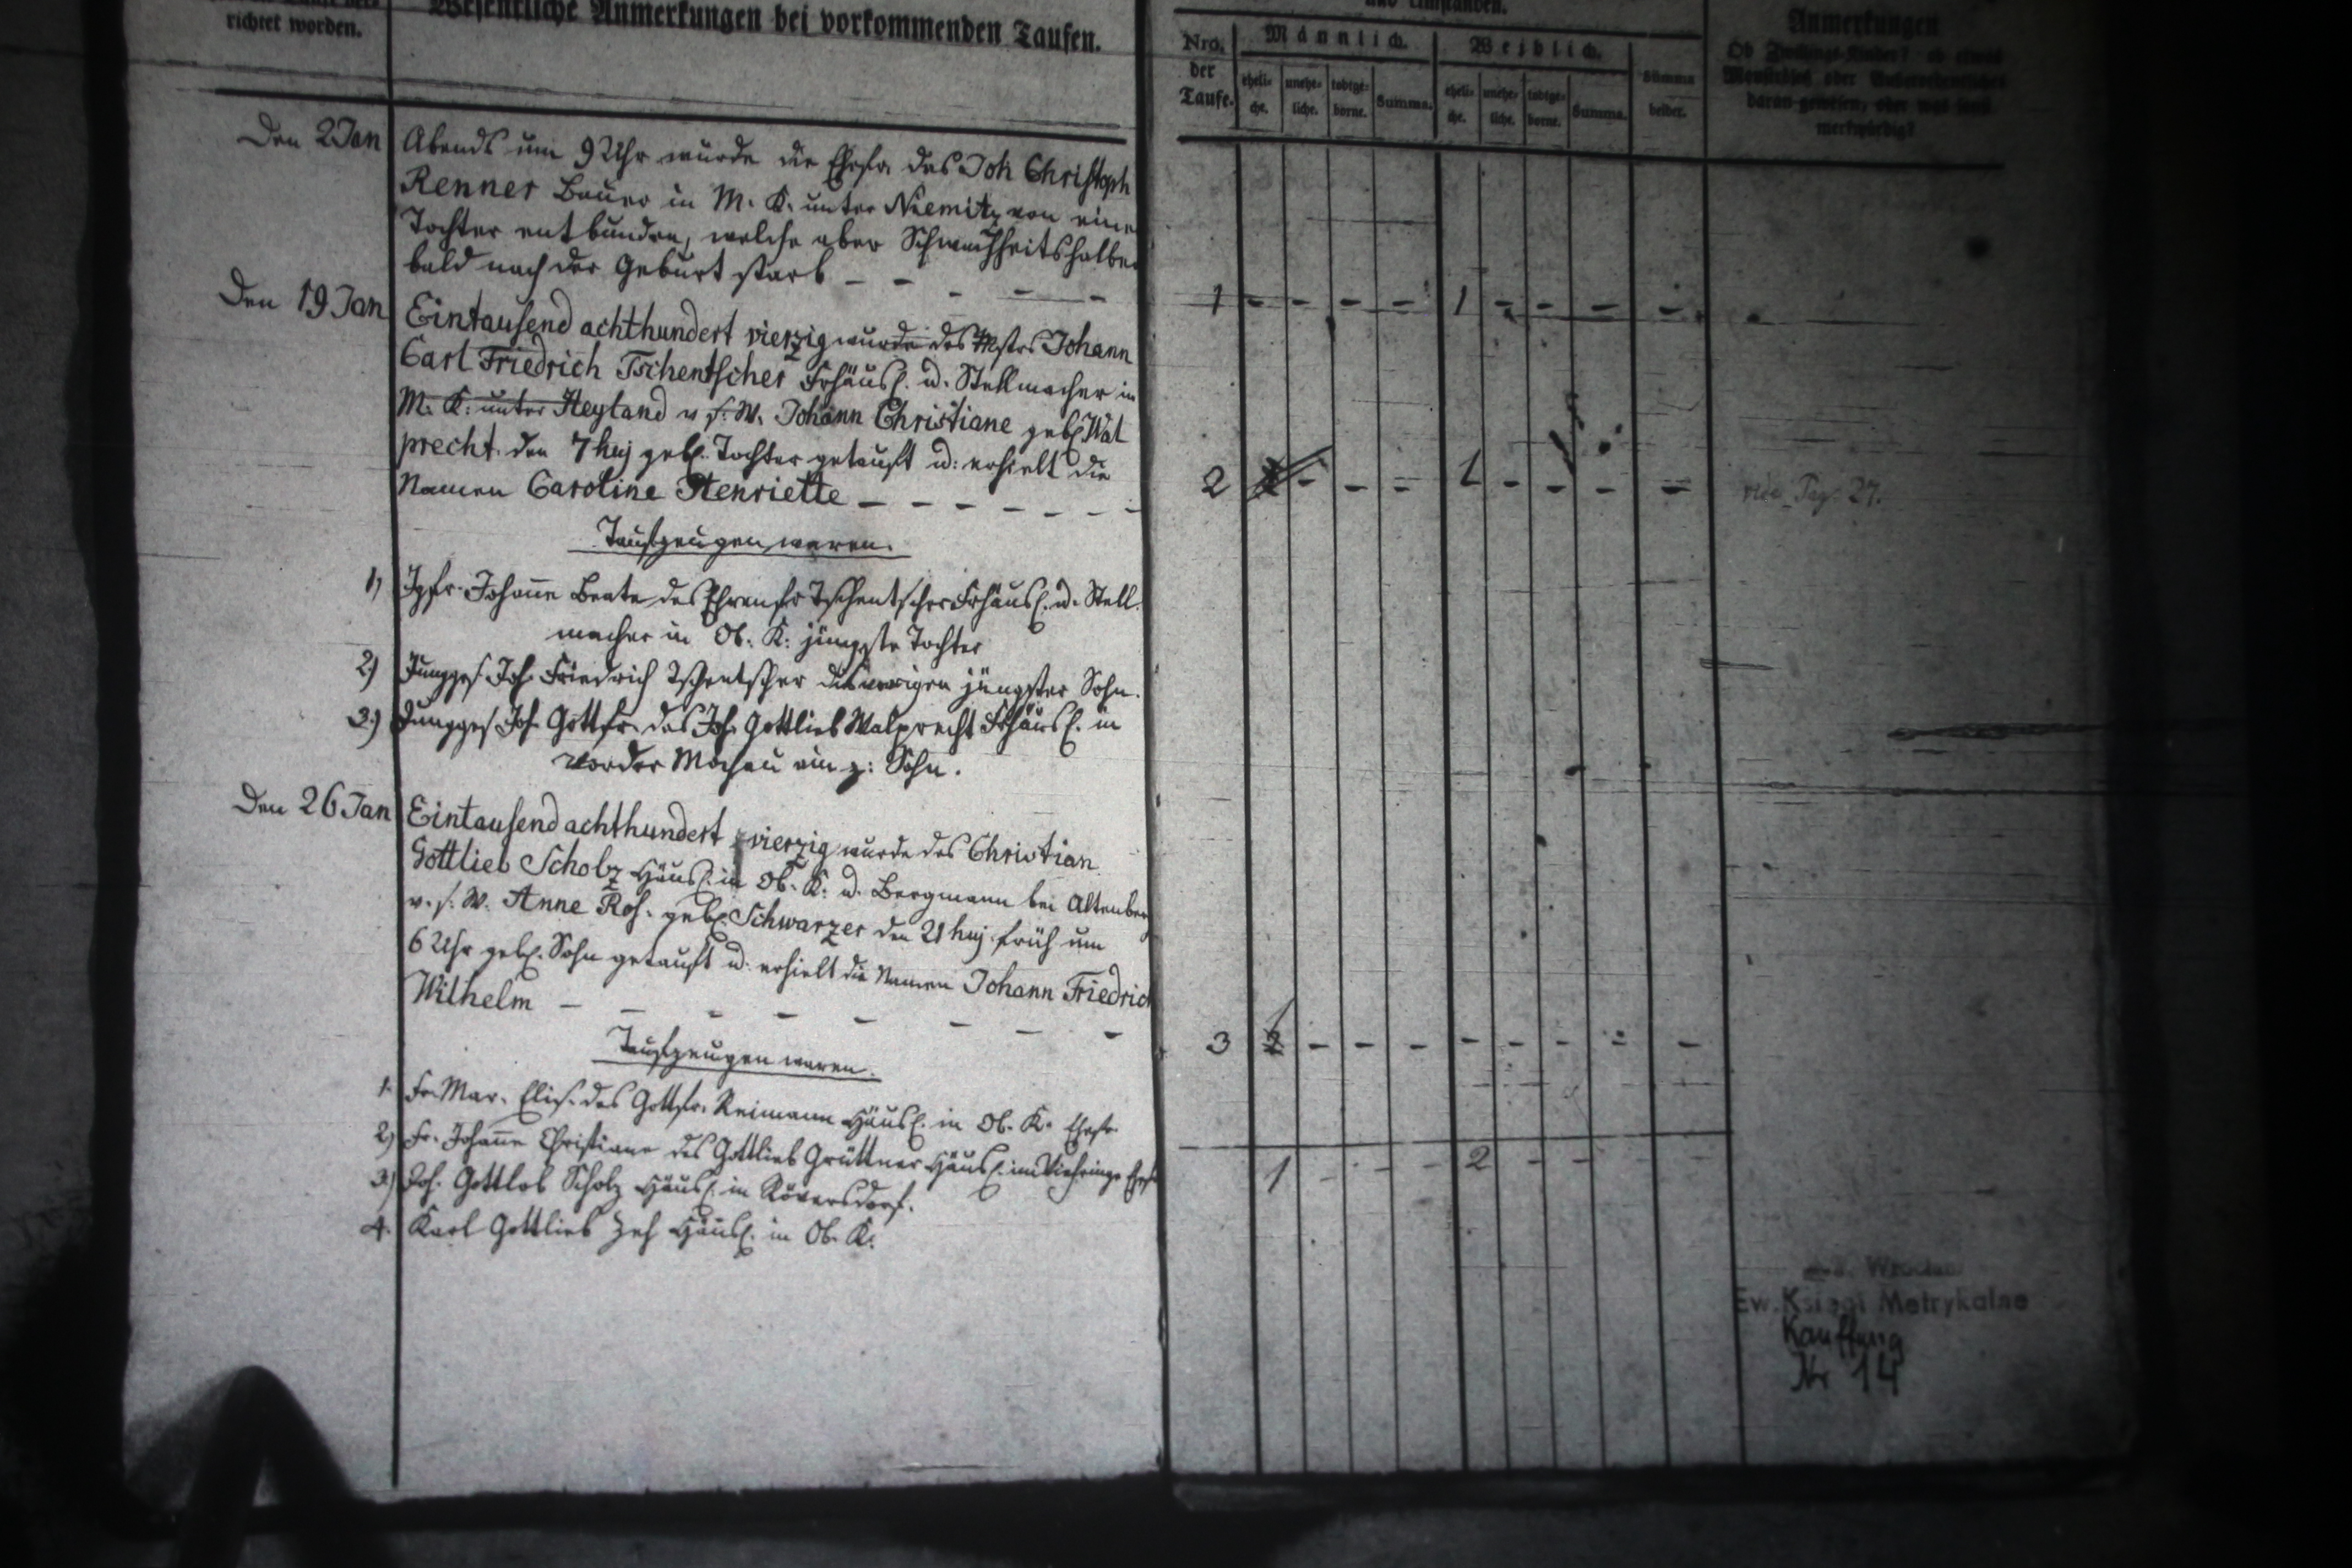 richtet worden.
Wesentliche Anmerkungen bei vorkommenden Taufen.
Den 2 Jan
Abends um 9 Uhr wurde die Ehefr. des Joh Christoph
Renner Bauer in M. K. unter Niemitz von eine
Tochter entbunden, welche aber Schwachheitshalber
bald nach der Geburt starb – – – – –
Den 19 Jan
Eintausend achthundert vierzig wurde des Mstrs Johann
Carl Friedrich Tschentscher Frhäusl. u. Stellmacher in
M. K. unter Heyland v. s. W. Johann Christiane geb. Wal
precht den 7 huj geb. Tochter getauft u: erhielt die
Namen Caroline Henriette – – – – – – –
Taufzeugen waren.
1) Jgfr. Johanne Beate des Ehrenfr Tschentscher Frhäusl. u. Stell
macher in Ob. K. jüngste Tochter
2) Jungges. Joh. Friedrich Tschentscher des vorigen jüngster Sohn.
3.) Jungges Joh. Gottfr. des Joh. Gottlieb Walprecht Frhäusl. in
Vorder Mochau ein z: Sohn.
Den 26 Jan
Eintausend achthundert vierzig wurde des Christian
Gottlieb Scholz Häusl. in Ob. K. u. Bergmann bei Altenberg
v. s. W. Anne Ros. geb. Schwarzer den 21 huj früh um
6 Uhr geb. Sohn getauft u: erhielt die Namen Johann Friedrich
Wilhelm – – – – – – – –
Taufzeugen waren.
1. Fr. Mar. Elis. des Gottfr. Reimann Häusl. in Ob. K. Ehefr.
2) Fr. Johanne Christiane des Gottlieb Grüttner Häusl. im Viehringe Ehefr
3) Joh. Gottlob Scholz Häusl. in Röversdorf.
4. Karl Gottlieb Zeh Häusl. in Ob. K.
und Umständen.
Nro. der Taufe.
Männlich.
eheli= che. unehe= liche. todtge= borne. Summa.
Weiblich.
eheli= che. unehe= liche. todtge= borne. Summa.
Summa beider.
Anmerkungen
Ob Zwillings-Kinder? ob etwas
daran gewesen, oder was sonst
merkwürdig?
1 – – – – 1 – – – –
2 – – – 1 – – – –
vide Pag: 27.
3 1 – – – – – – – –
1 – – – 2 – –
Wrocław
Ew. Księgi Metrykalne
Kauffung
Nr 14